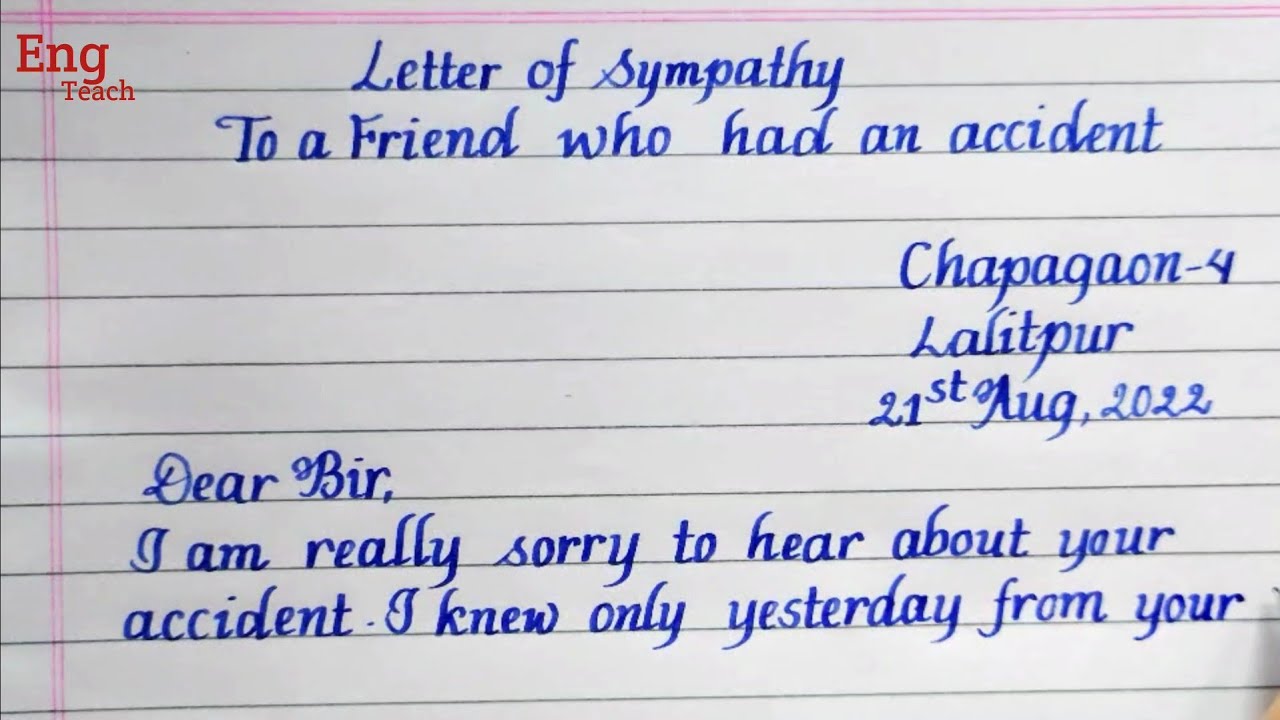 Eng
Teach
Letter of Sympathy
To a Friend who had an accident
Chapagaon-4
Lalitpur
21st Aug, 2022
Dear Bir,
I am really sorry to hear about your
accident. I knew only yesterday from your